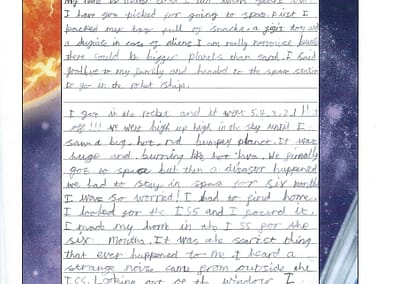 I have got picked for going to space. First I
packed my bag full of snacks. a toy and
a disguise in case of aliens. I am really nervouse because
there could be bigger planets than said. I said
goodbye to my family and headed to the space station
to go in the rocket ship.
I got in the rocket and it went 5.4.3.2.1 !!
off!!! We went high up high in the sky until I
saw a big, hot, red bumpy planet. It was
huge and burning like hot lava. We finally
got to space but then a disaster happened
we had to stay in space for six months
I was so worried! I had to find home.
I looked for the ISS and I found it.
I made my home in the ISS for the
six months. It was the scariest thing
that ever happened to me. I heard a
strange noise came from outside the
ISS. Looking out of the window I